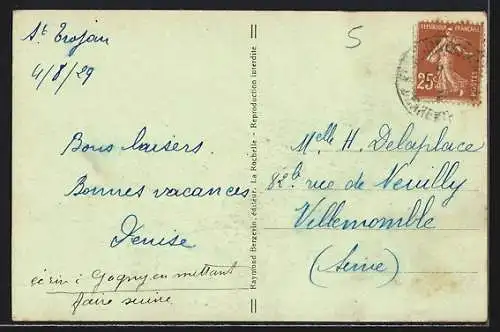 St Trojan
4/8/29
Bons baisers.
Bonnes vacances
Denise
écrire à Gagny en mettant
faire suivre
Raymond Bergevin, éditeur, La Rochelle - Reproduction interdite
5
REPUBLIQUE FRANÇAISE
25c
POSTES
Melle H. Delaplace
82b rue de Neuilly
Villemomble
(Seine)